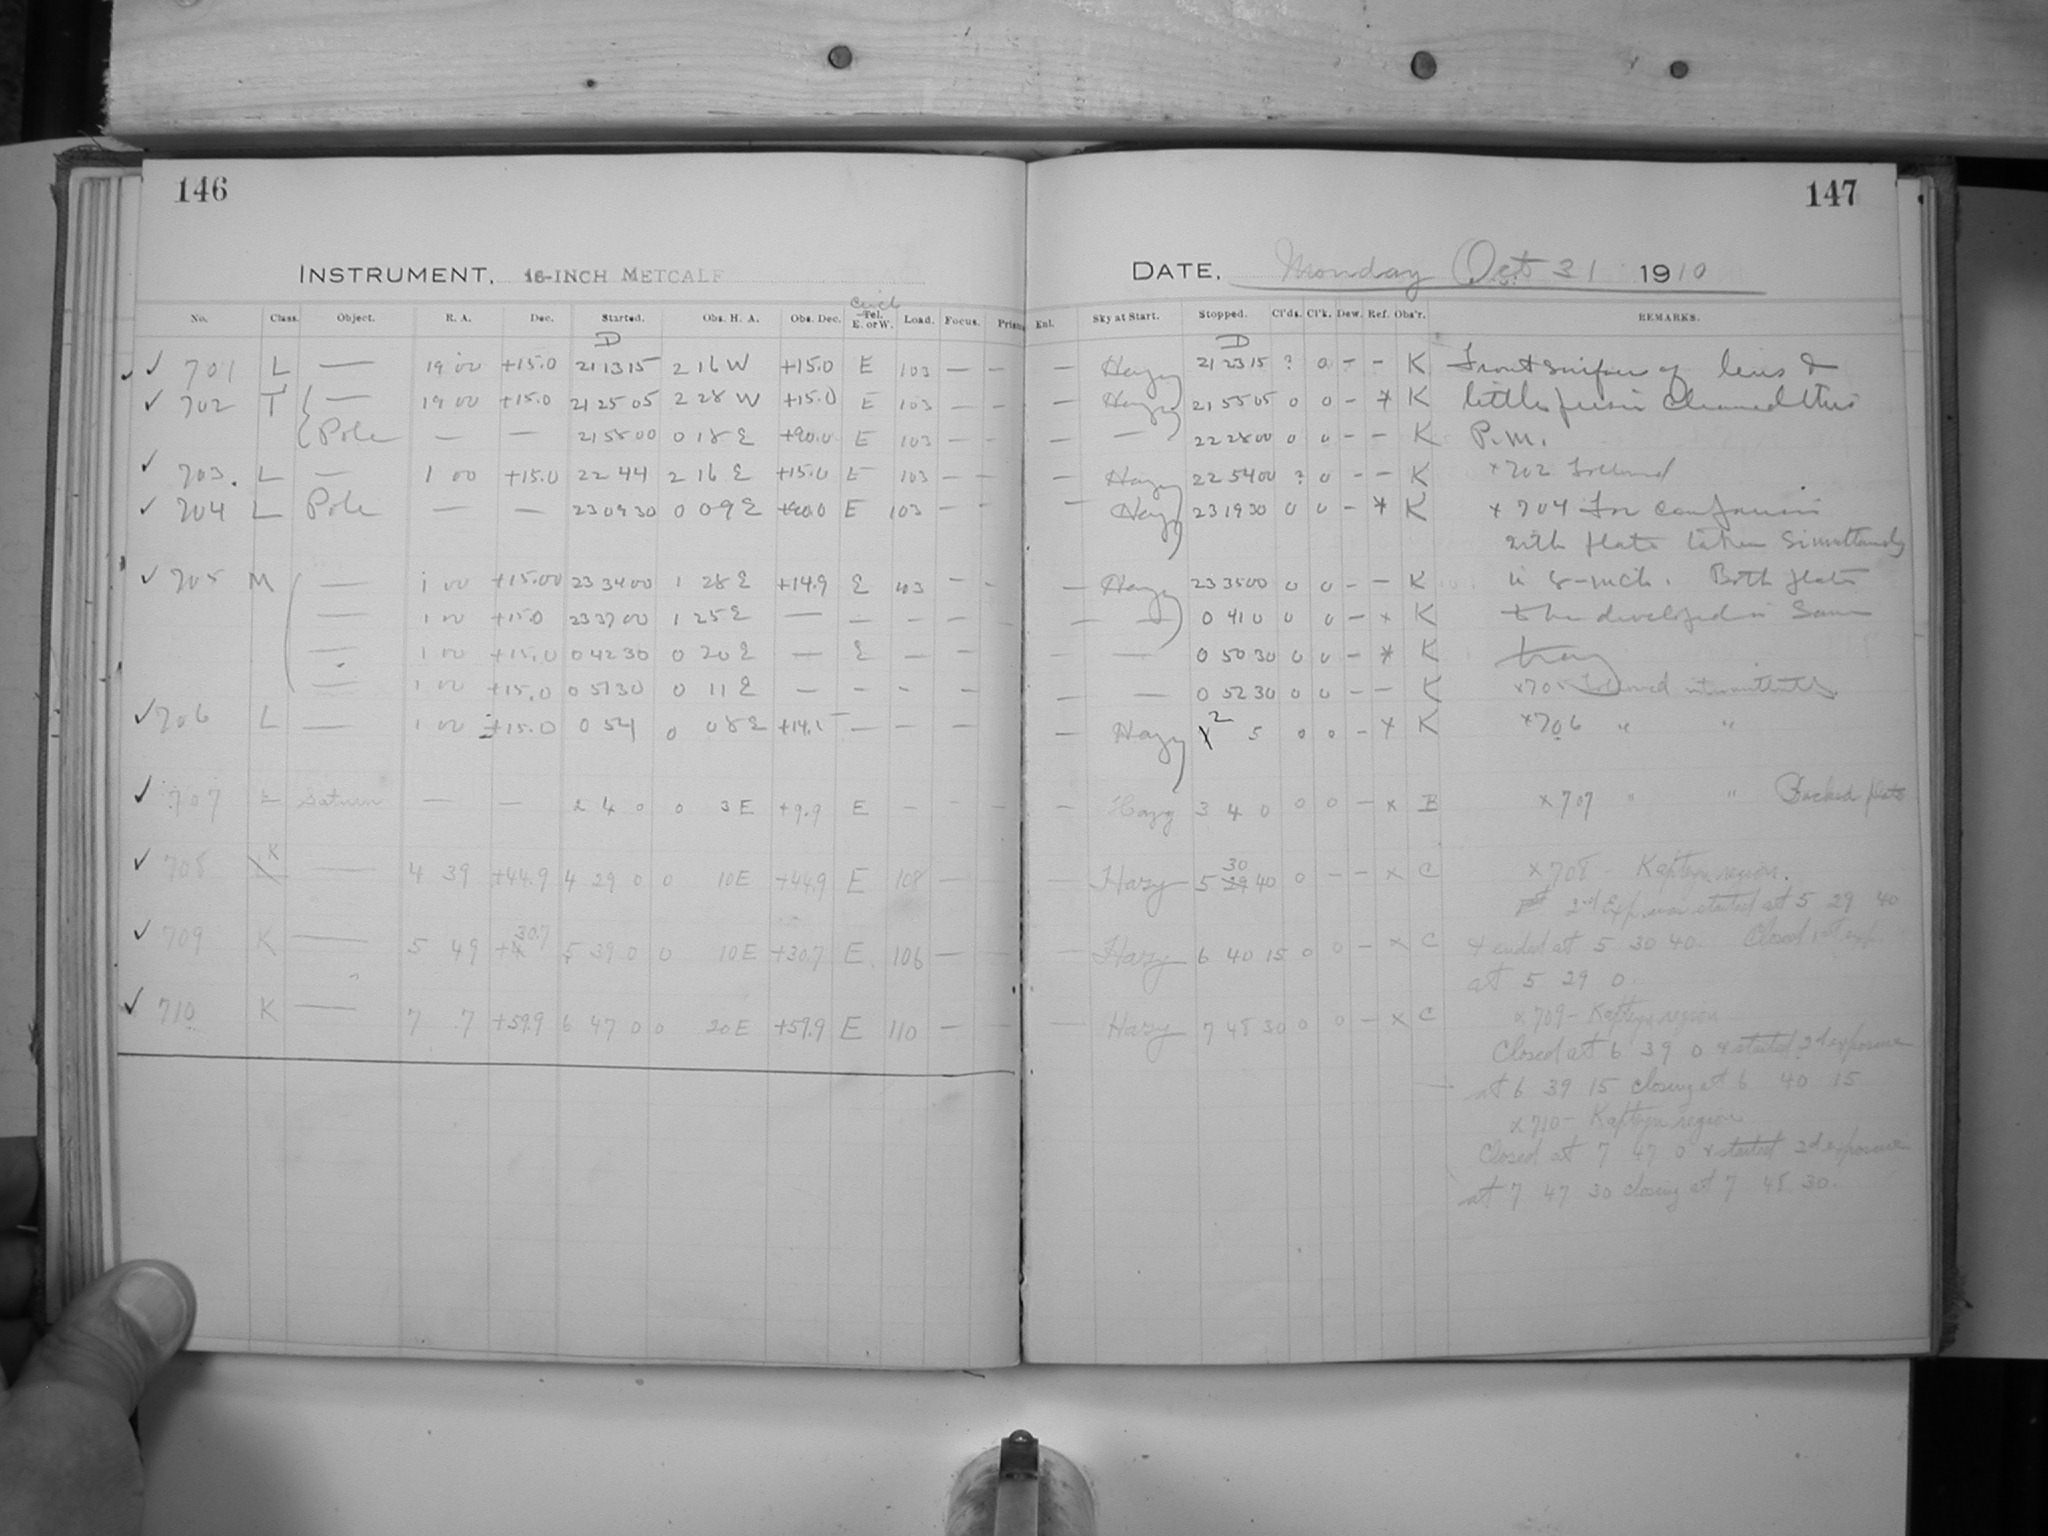 146
147
INSTRUMENT. 16-INCH METCALF
DATE. Monday Oct 31 1910
No. Class. Object. R. A. Dec. Started. Obs. H. A. Obs. Dec. Circle Tel. E. or W. Load. Focus. Prism Enl. Sky at Start. Stopped. Cl'ds. Cl'k. Dew. Ref. Obs'r. REMARKS.
D D
✓ 701 L — 19 00 +15.0 21 13 15 2 16 W +15.0 E 103 — — — Hazy 21 23 15 ? 0 - - K Front surface of lens &
✓ 702 T { — 19 00 +15.0 21 25 05 2 28 W +15.0 E 103 — — — Hazy 21 55 05 0 0 - * K little prism cleaned this
Pole — — 21 58 00 0 18 E +90.0 E 103 — — — — 22 28 00 0 0 - - K P.M.
✓ 703. L — 1 00 +15.0 22 44 2 16 E +15.0 E 103 — — — Hazy 22 54 00 ? 0 - - K × 702 Followed
✓ 704 L Pole — — 23 09 30 0 09 E +90.0 E 103 — - — Hazy 23 19 30 0 0 - * K × 704 For comparison
with plate taken simultaneously
✓ 705 M ( — 1 00 +15.00 23 34 00 1 28 E +14.9 E 103 — — — Hazy 23 35 00 0 0 - - K in 8-inch. Both plates
— 1 00 +15.0 23 37 00 1 25 E — — — — — — — 0 41 0 0 0 - × K to be developed in same
— 1 00 +15.0 0 42 30 0 20 E — E — — — — 0 50 30 0 0 - * K tray
— 1 00 +15.0 0 51 30 0 11 E — — - — — — 0 52 30 0 0 - - K ×705 Followed intermittently
✓ 706 L — 1 00 +15.0 0 54 0 08 E +14.1 — — — — Hazy 2 5 0 0 - × K ×706 " "
✓ 707 L Saturn — — 2 4 0 0 3 E +9.9 E - — — — Hazy 3 4 0 0 0 - × B × 707 " " Backed plate
✓ 708 K — 4 39 +44.9 4 29 0 0 10 E +44.9 E 108 — — — Hazy 5 30 40 0 - - × C × 708 - Kapteyn region.
2nd Exposure started at 5 29 40
✓ 709 K — 5 49 +30.7 5 39 0 0 10 E +30.7 E 106 — — — Hazy 6 40 15 0 0 - × C & ended at 5 30 40. Closed 1st exp.
at 5 29 0.
✓ 710 K — 7 7 +59.9 6 47 0 0 20 E +59.9 E 110 — — — Hazy 7 48 30 0 0 - × C × 709 - Kapteyn region
Closed at 6 39 0 & started 2d exposure
at 6 39 15 closing at 6 40 15
× 710 - Kapteyn region
Closed at 7 47 0 & started 2d exposure
at 7 47 30 closing at 7 48 30.